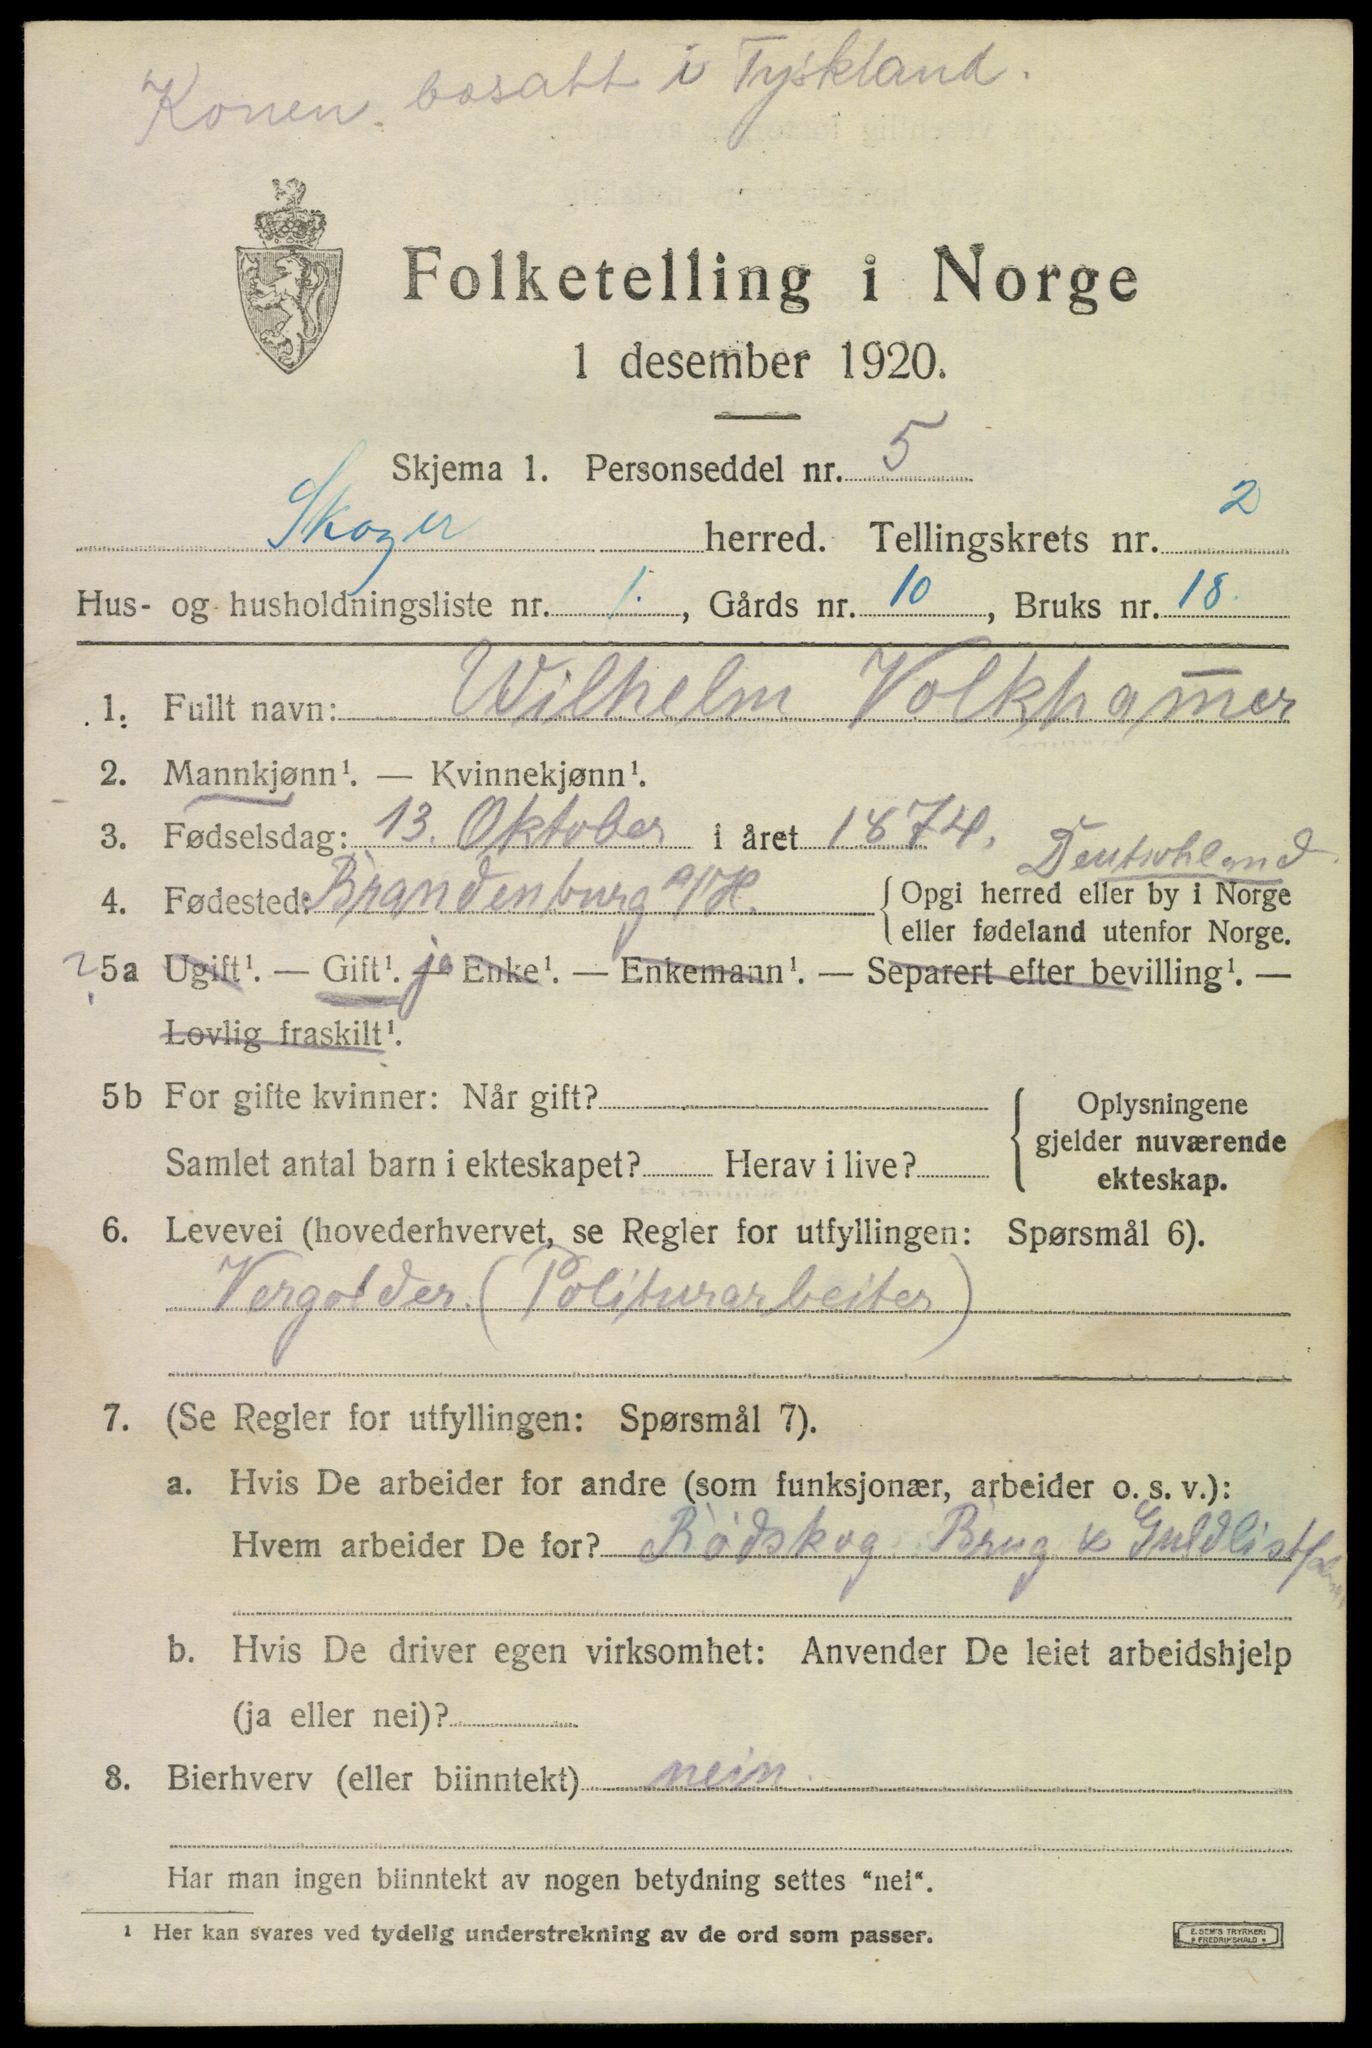 Konen bosatt i Tyskland.
Folketelling i Norge
1 desember 1920.
Skjema 1. Personseddel nr. 5
Skoger herred. Tellingskrets nr. 2
Hus- og husholdningsliste nr. 1., Gårds nr. 10, Bruks nr. 18.
1. Fullt navn: Wilhelm Volkham̅er
2. Mannkjønn¹. — Kvinnekjønn¹.
3. Fødselsdag: 13. Oktober i året 1874.
Deutschland
4. Fødested: Brandenburg a/H. {Opgi herred eller by i Norge
eller fødeland utenfor Norge.
5a Ugift¹. — Gift¹. ja — Enke¹. — Enkemann¹. — Separert efter bevilling¹. —
Lovlig fraskilt¹.
5b For gifte kvinner: Når gift? Oplysningene
gjelder nuværende
Samlet antal barn i ekteskapet? Herav i live? ekteskap.
6. Levevei (hovederhvervet, se Regler for utfyllingen: Spørsmål 6).
Vergolder. (Politurarbeiter)
7. (Se Regler for utfyllingen: Spørsmål 7).
a. Hvis De arbeider for andre (som funksjonær, arbeider o. s. v.):
Hvem arbeider De for? Rödskog Brug & Guldlist
b. Hvis De driver egen virksomhet: Anvender De leiet arbeidshjelp
(ja eller nei)?
8. Bierhverv (eller biinntekt) nein.
Har man ingen biinntekt av nogen betydning settes "nei".
¹ Her kan svares ved tydelig understrekning av de ord som passer.
E. SEM'S TRYKKERI
FREDRIKSHALD